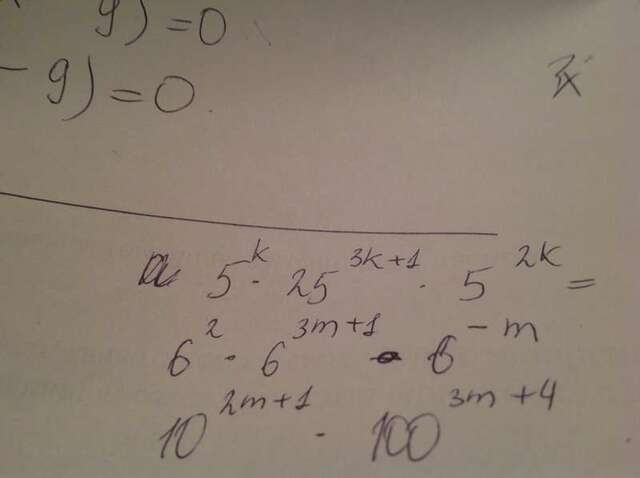 9) = 0
- 9) = 0
а 5^k · 25^{3k+1} · 5^{2k} =
6^2 · 6^{3m+1} · 6^{-m}
10^{2m+1} · 100^{3m+4}